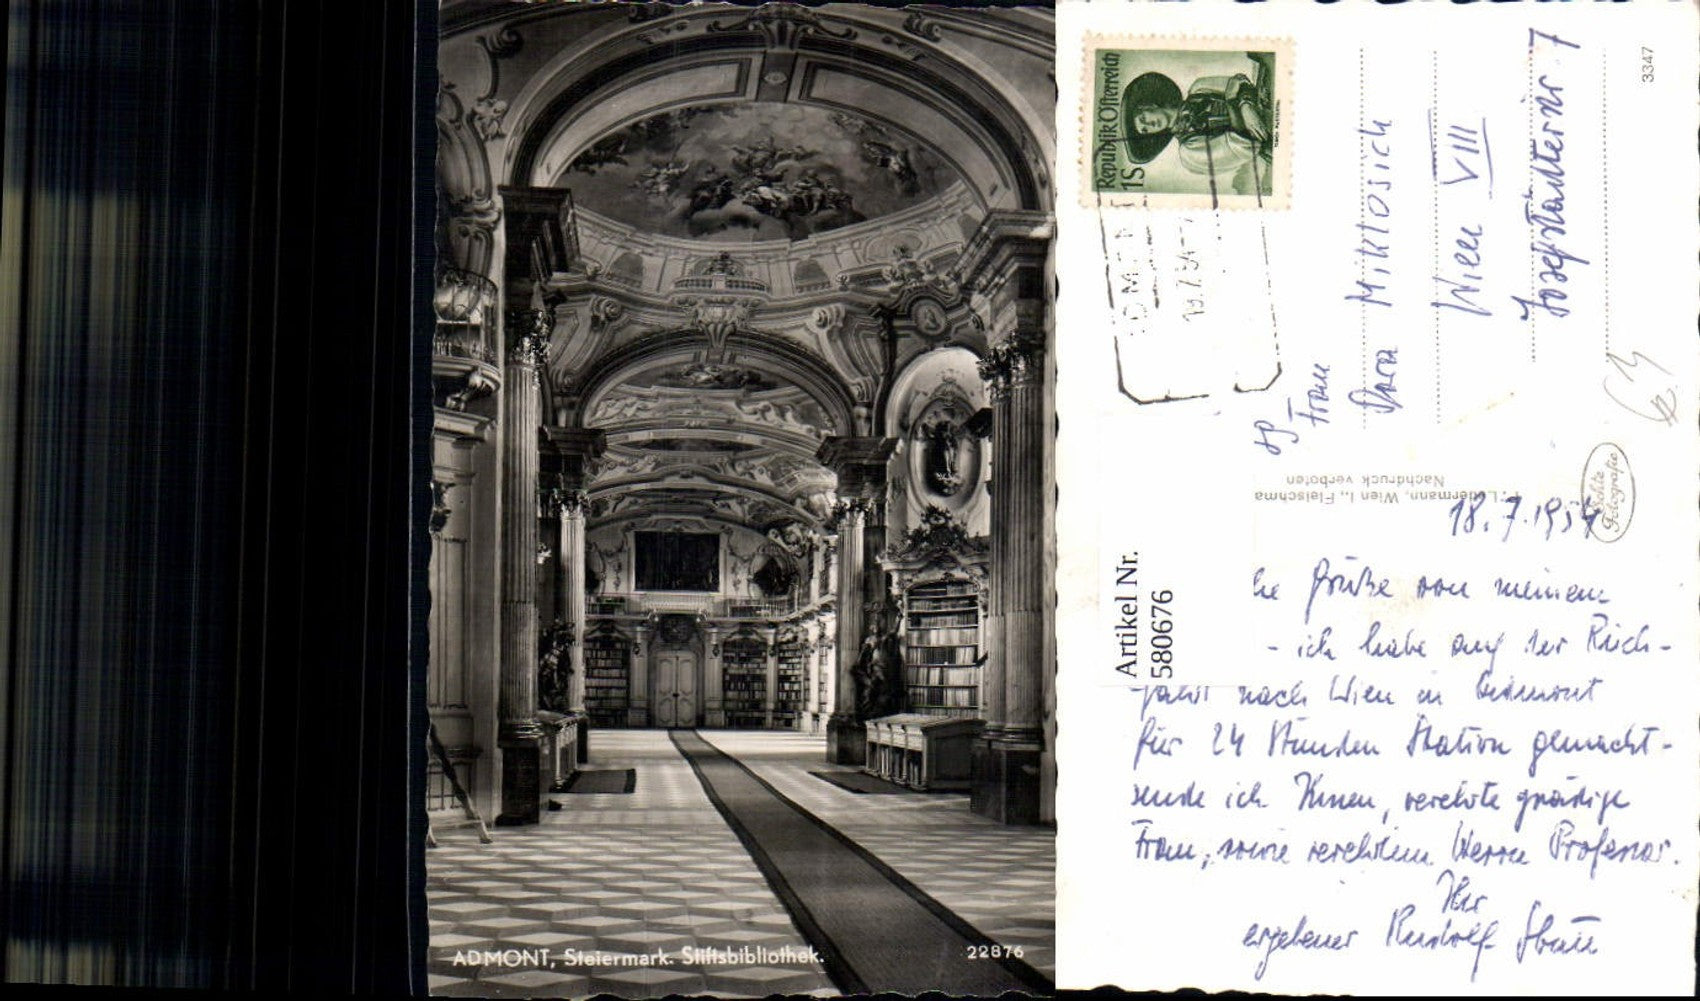 ADMONT, Steiermark. Stiftsbibliothek.
22876
Republik Österreich
1S
19.7.54
3347
Frau
Miklosich
Wien VIII
Josefstädterstr 7
Ledermann, Wien I., Fleischma
Nachdruck verboten
Echte
Fotografie
Artikel Nr.
580676
18.7.1954
he Grüße von meinem
- ich habe auf der Rück-
fahrt nach Wien in Admont
für 24 Stunden Station gemacht-
sende ich Ihnen, verehrte gnädige
Frau, sowie verehrtem Herrn Professor.
Ihr
ergebener Rudolf